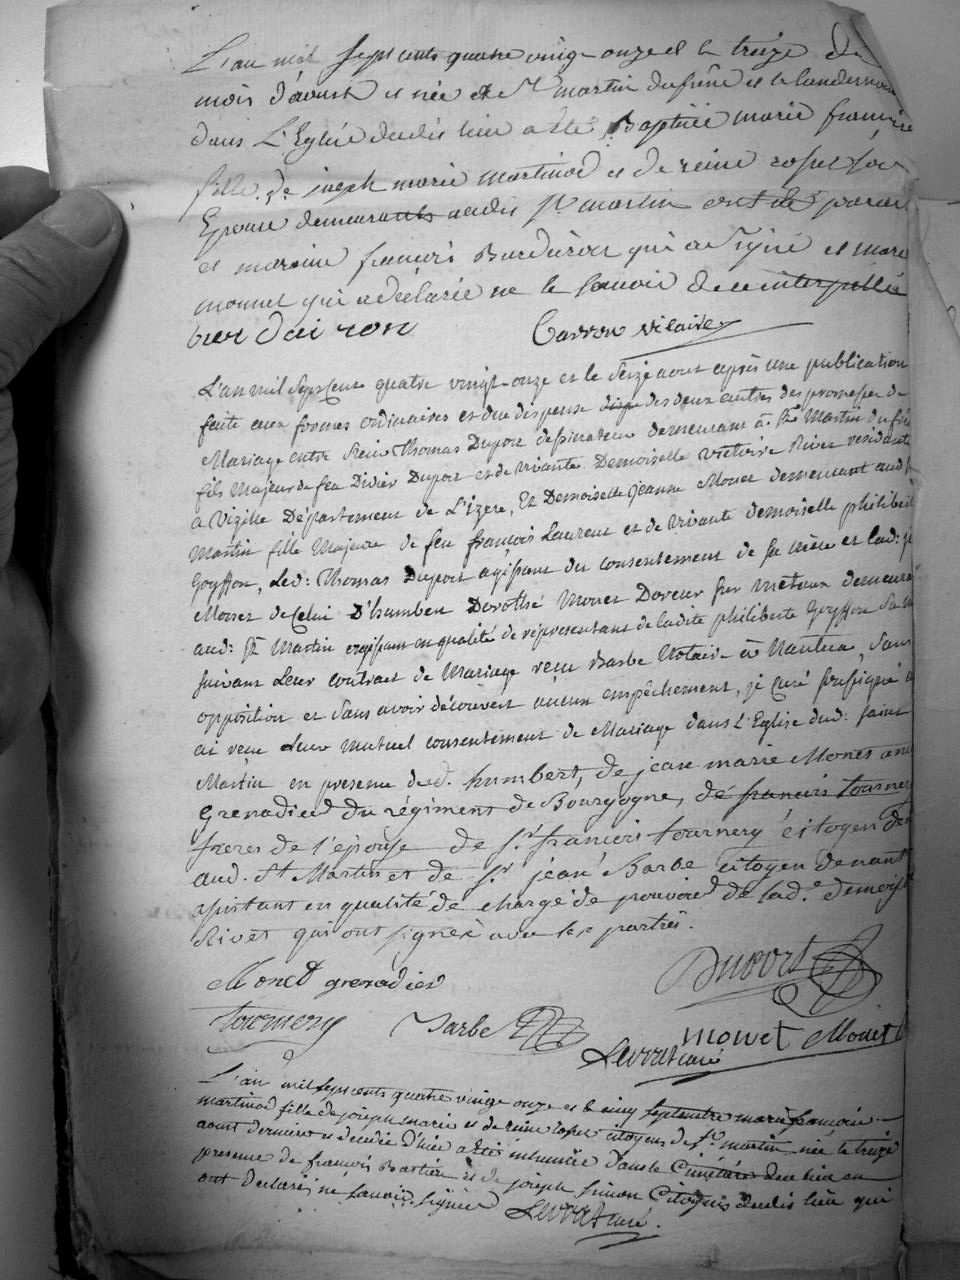 L'an mil sept cents quatre vingt onze et le treize du
mois d'aoust est née à St martin du frêne et le landemain
dans L'Eglise dudis lieu a été Baptisée marie françoise
fille de joseph marie martinod et de reine rosset sa
Epouse demeurants audis st martin ont été parain
et maraine françois Burdairon qui a signé et marie
monnet qui a déclarée ne le savoir de ce interpellée
burdairon Carron vicaire
L'an mil Sept cent quatre vingt onze et le Seize aout après une publication
faite aux formes ordinaires et due dispense des deux autres des promesses de
Mariage entre Sieur Thomas Duport dessinateur demeurant à St Martin du frêne
fils Majeur de feu Didier Duport et de vivante Demoiselle victoire Rivet residante
à Vizille Département de L'Izere, Et Demoiselle Jeanne Monet demeurant aud St
Martin fille Majeure de feu françois Laurent et de vivante demoiselle philiberte
Goyffon, Led: Thomas Duport agissant du consentement de sa mère et lad: je
Monet de Celui D'humbert Dorothé Monet Doreur sur métaux demeurant
aud: St Martin agissant en qualité de réprésentant de ladite philiberte Goyffon sa
suivant Leur contract de Mariage reçu Barbe Notaire à Nantua, Sans
opposition et Sans avoir découvert aucun empêchement, je curé soussigné
ai reçu Leur Mutuel consentement de Mariage dans L'Eglise dud: saint
Martin en présence dud. humbert, de jean marie Monet
Grenadier du régiment de Bourgogne, de francois tournery
frères de l'épouse de sr françois tournery citoyen
aud. St Martin et de sr jean Barbe citoyen de nant
assistant en qualité de chargé de pouvoir de lad.e demoiselle
Rivet qui ont signés avec les parties.
Monet grenadier Duport
tournery Barbe monet Monet
Levrat curé
L'an mil sept cents quatre vingt onze et le cinq septembre marie françoise
martinod fille de joseph marie et de reine rosset citoyens de St martin née le treize
aout dernier et decedée d'hier a été inhumée dans le Cimetière dud lieu en
presence de françois Bastien et de joseph simon Citoyens dudis lieu qui
ont declarés ne savoir signer Levrat curé.